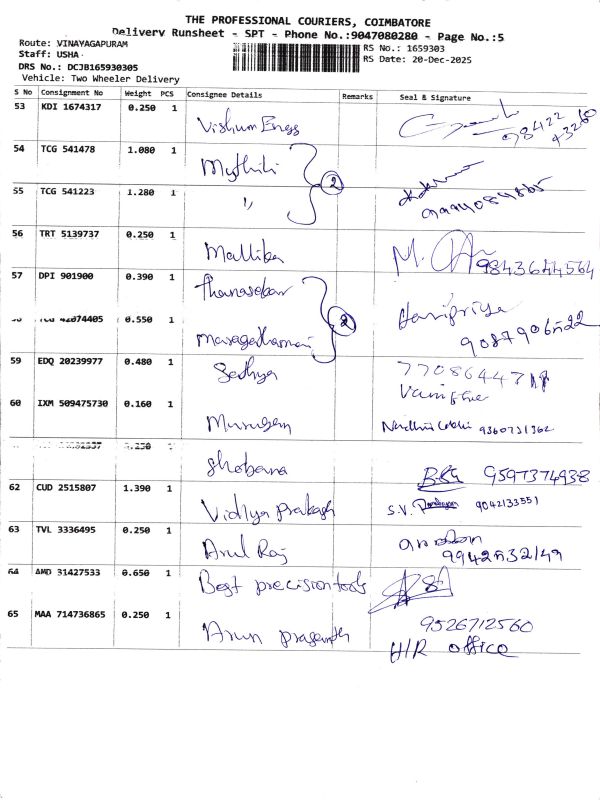 THE PROFESSIONAL COURIERS, COIMBATORE
Delivery Runsheet - SPT - Phone No.:9047080280 - Page No.:5
Route: VINAYAGAPURAM
Staff: USHA
DRS No.: DCJB165930305
Vehicle: Two Wheeler Delivery
RS No.: 1659303
RS Date: 20-Dec-2025
S No Consignment No Weight PCS Consignee Details Remarks Seal & Signature
53 KDI 1674317 0.250 1 98422 43260
54 TCG 541478 1.080 1 Mythili
55 TCG 541223 1.280 1 〃 2
56 TRT 5139737 0.250 1 Mallika M. 9843644564
57 DPI 901900 0.390 1 Thanasekar Haripriya
42074405 0.550 1 2 9087906522
59 EDQ 20239977 0.480 1 Sathya
60 IXM 509475730 0.160 1 Murugan 9360731362
0.250 1 Shobana 9597374938
62 CUD 2515807 1.390 1 Vidhya Prakash S.V. 9042133551
63 TVL 3336495 0.250 1 Arul Raj 9942832149
64 AMD 31427533 0.650 1 Best precision tools
65 MAA 714736865 0.250 1 Arun prasanth 9526712560
H/R office